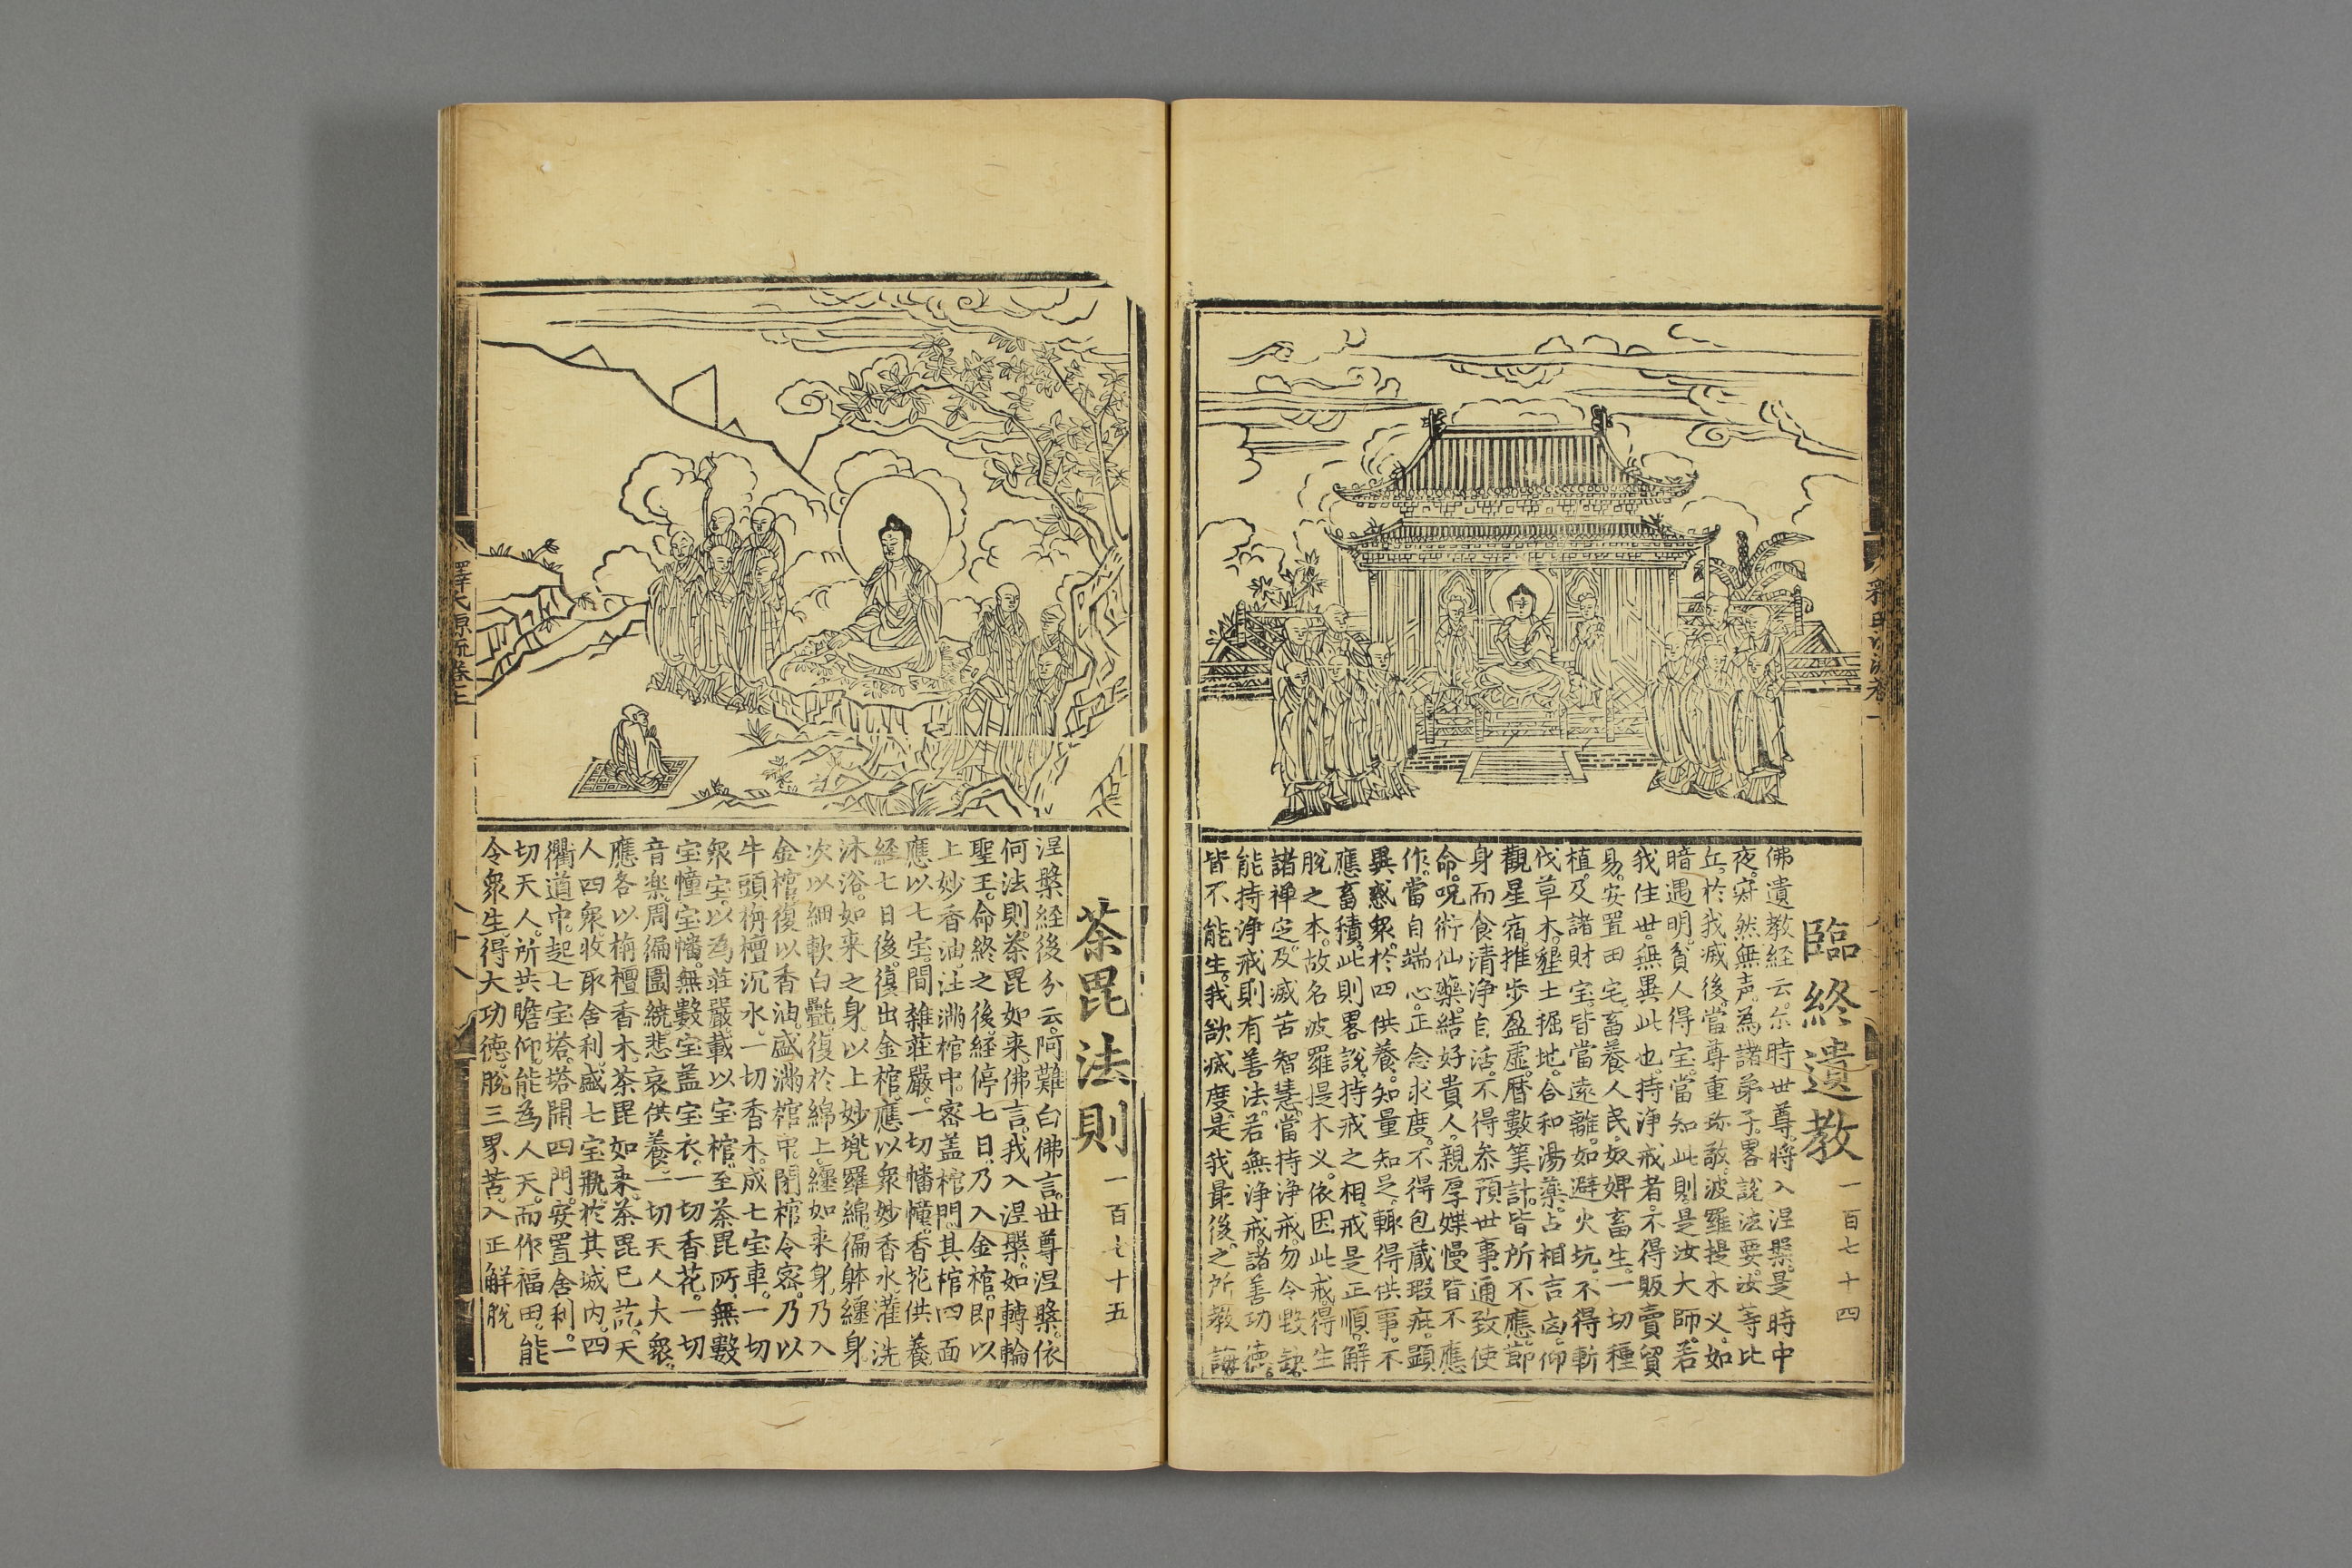 臨終遺教 一百七十四
佛遺教経云尒時世尊。将入涅槃。是時中
夜。寂然無声。為諸弟子。畧說法要。汝等比
丘。於我滅後。當尊重珎敬。波羅提木义。如
暗遇明。貧人得宝。當知此則是汝大師。若
我住世。無異此也。持浄戒者。不得販賣貿
易。安置田宅。畜養人民。奴婢畜生。一切種
植。及諸財宝。皆當遠離。如避火坑。不得斬
伐草木。墾土掘地。合和湯藥。占相言凶。仰
觀星宿。推步盈虛。曆數筭計。皆所不應。節
身而食。清浄自活。不得叅預世事。通致使
命。呪術仙藥。結好貴人。親厚媟慢。皆不應
作。當自端心。正念求度。不得包藏瑕疵。顕
異惑衆。於四供養。知量知足。輙得供事。不
應畜積。此則畧說。持戒之相。戒是正順。解
脫之本。故名波羅提木义。依因此戒。得生
諸禅定。及滅苦智慧。當持浄戒。勿令毀缺。
能持浄戒。則有善法。若無浄戒。諸善功德。
皆不能生。我欲滅度。是我最後。之所教誨
荼毘法則 一百七十五
涅槃経後分云。阿難白佛言。世尊涅槃。依
何法則。荼毘如来。佛言。我入涅槃。如轉輪
聖王。命終之後。経停七日。乃入金棺。即以
上妙香油。注滿棺中。宻盖棺門。其棺四面
應以七宝。間雜莊嚴。一切幡幢。香花供養
経七日後。復出金棺。應以衆妙香水。灌洗
沐浴。如来之身。以上妙兜羅綿。徧躰纏身。
次以細軟白㲲。復於綿上。纏如来身。乃入
金棺。復以香油。盛滿棺中。閉棺令宻。乃以
牛頭栴檀沉水。一切香木。成七宝車。一切
衆宝。以為莊嚴。載以宝棺。至荼毘所。無數
宝幢宝幡。無數宝盖宝衣。一切香花。一切
音楽。周徧圍繞。悲哀供養。一切天人大衆。
應各以栴檀香木。荼毘如来。荼毘已訖。天
人四衆。收取舍利。盛七宝瓶。於其城内。四
衢道中。起七宝塔。塔開四門。安置舍利。一
切天人。所共瞻仰。能為人天。而作福田。能
令衆生。得大功德。脫三界苦。入正解脫
釋氏源流卷上
八十八